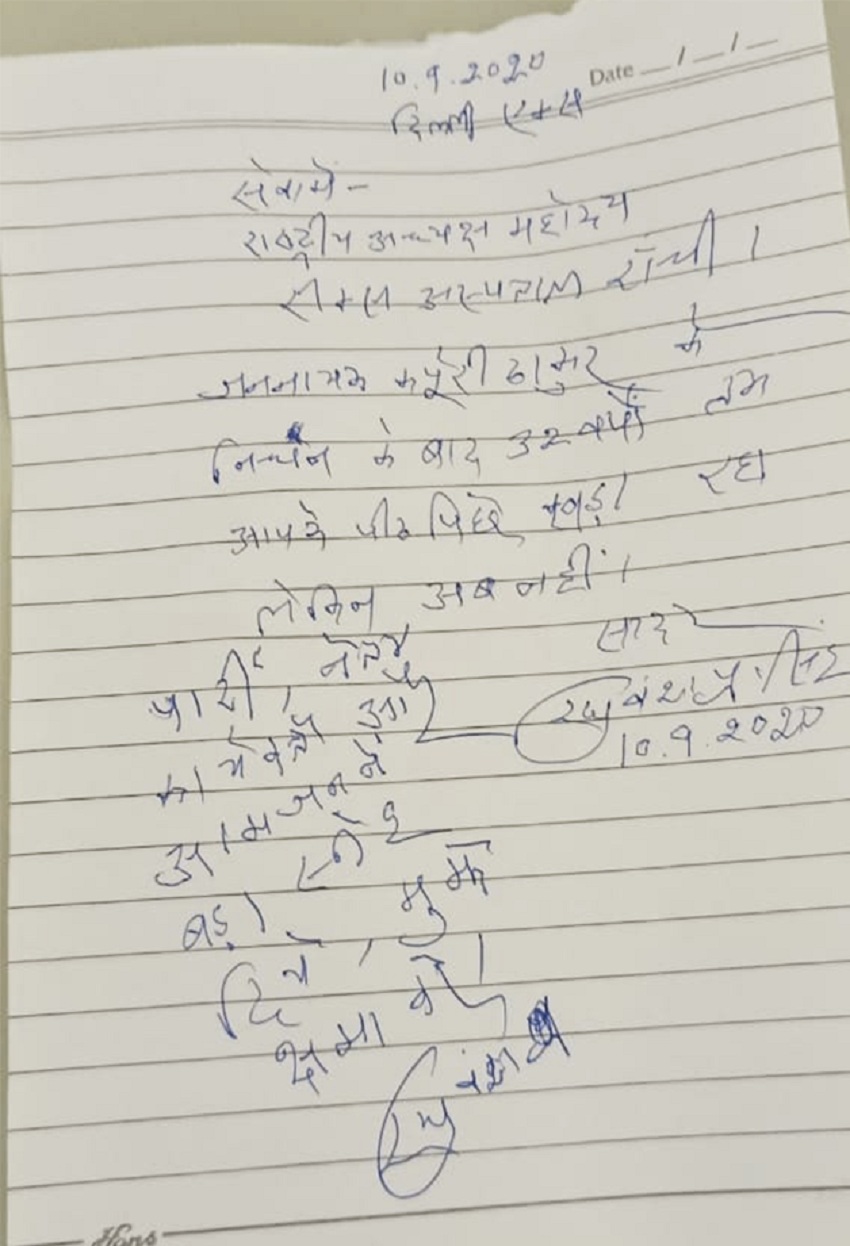 10.9.2020
Date __/__/__
दिल्ली एम्स
सेवामें-
राष्ट्रीय अध्यक्ष महोदय
रीम्स अस्पताल राँची।
जननायक कर्पूरी ठाकुर के
निधन के बाद 32 वर्षों तक
आपके पीठ पिछे खड़ा रहा
लेकिन अब नहीं।
पार्टी, नेता
कार्यकर्ता और
आमजन ने
बड़ा स्नेह
दिया, मुझे
क्षमा करें।
सादर
रघुवंश प्रo सिंह
10.9.2020
रघुवंश प्र
Hans